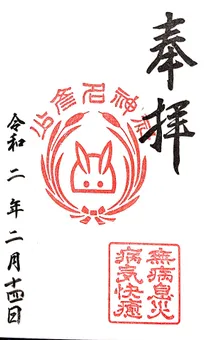 奉拝
少彦名神
令和二年二月十四日
無病息災
病気快癒